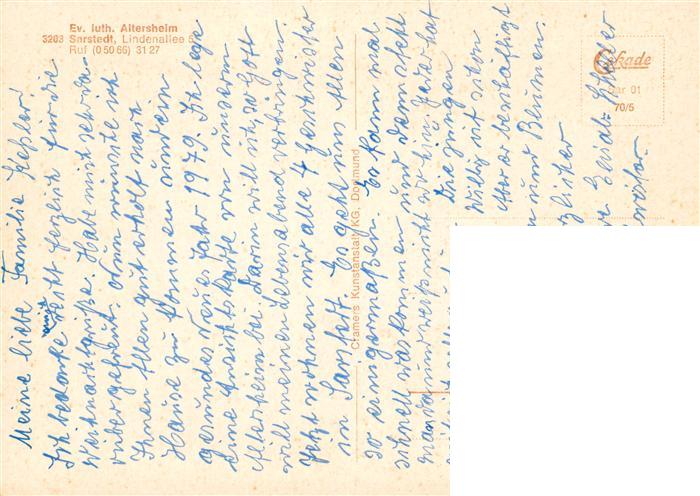 Ev. luth. Altersheim
3203 Sarstedt, Lindenallee 5
Ruf (0 50 66) 31 27
Cekade
Sar 01
70/5
Cramers Kunstanstalt KG, Dortmund
Meine liebe Familie Keßler!
Ich bedanke mich recht herzlich für die
Weihnachtgrüße. Habe mich sehr da
rüber gefreut. Nun wünsche ich
Ihnen Allen gut erholt nach
Hause zu kommen und ein
gesundes neues Jahr 1979. Ich lege
eine Ansichtskarte von unserm
Altersheim bei. Darin will ich, so Gott
will meinen Lebensabend verbringen.
Jetzt wohnen wir alle 4 Geschwister
in Sarstedt. Es geht uns Allen
so einigermaßen. Es kann mal
schnell was kommen und dann steht
man da und weiß nicht wo hin.
Die Jungen
Willig ist schon
etwas beschäftigt
und Blumen.